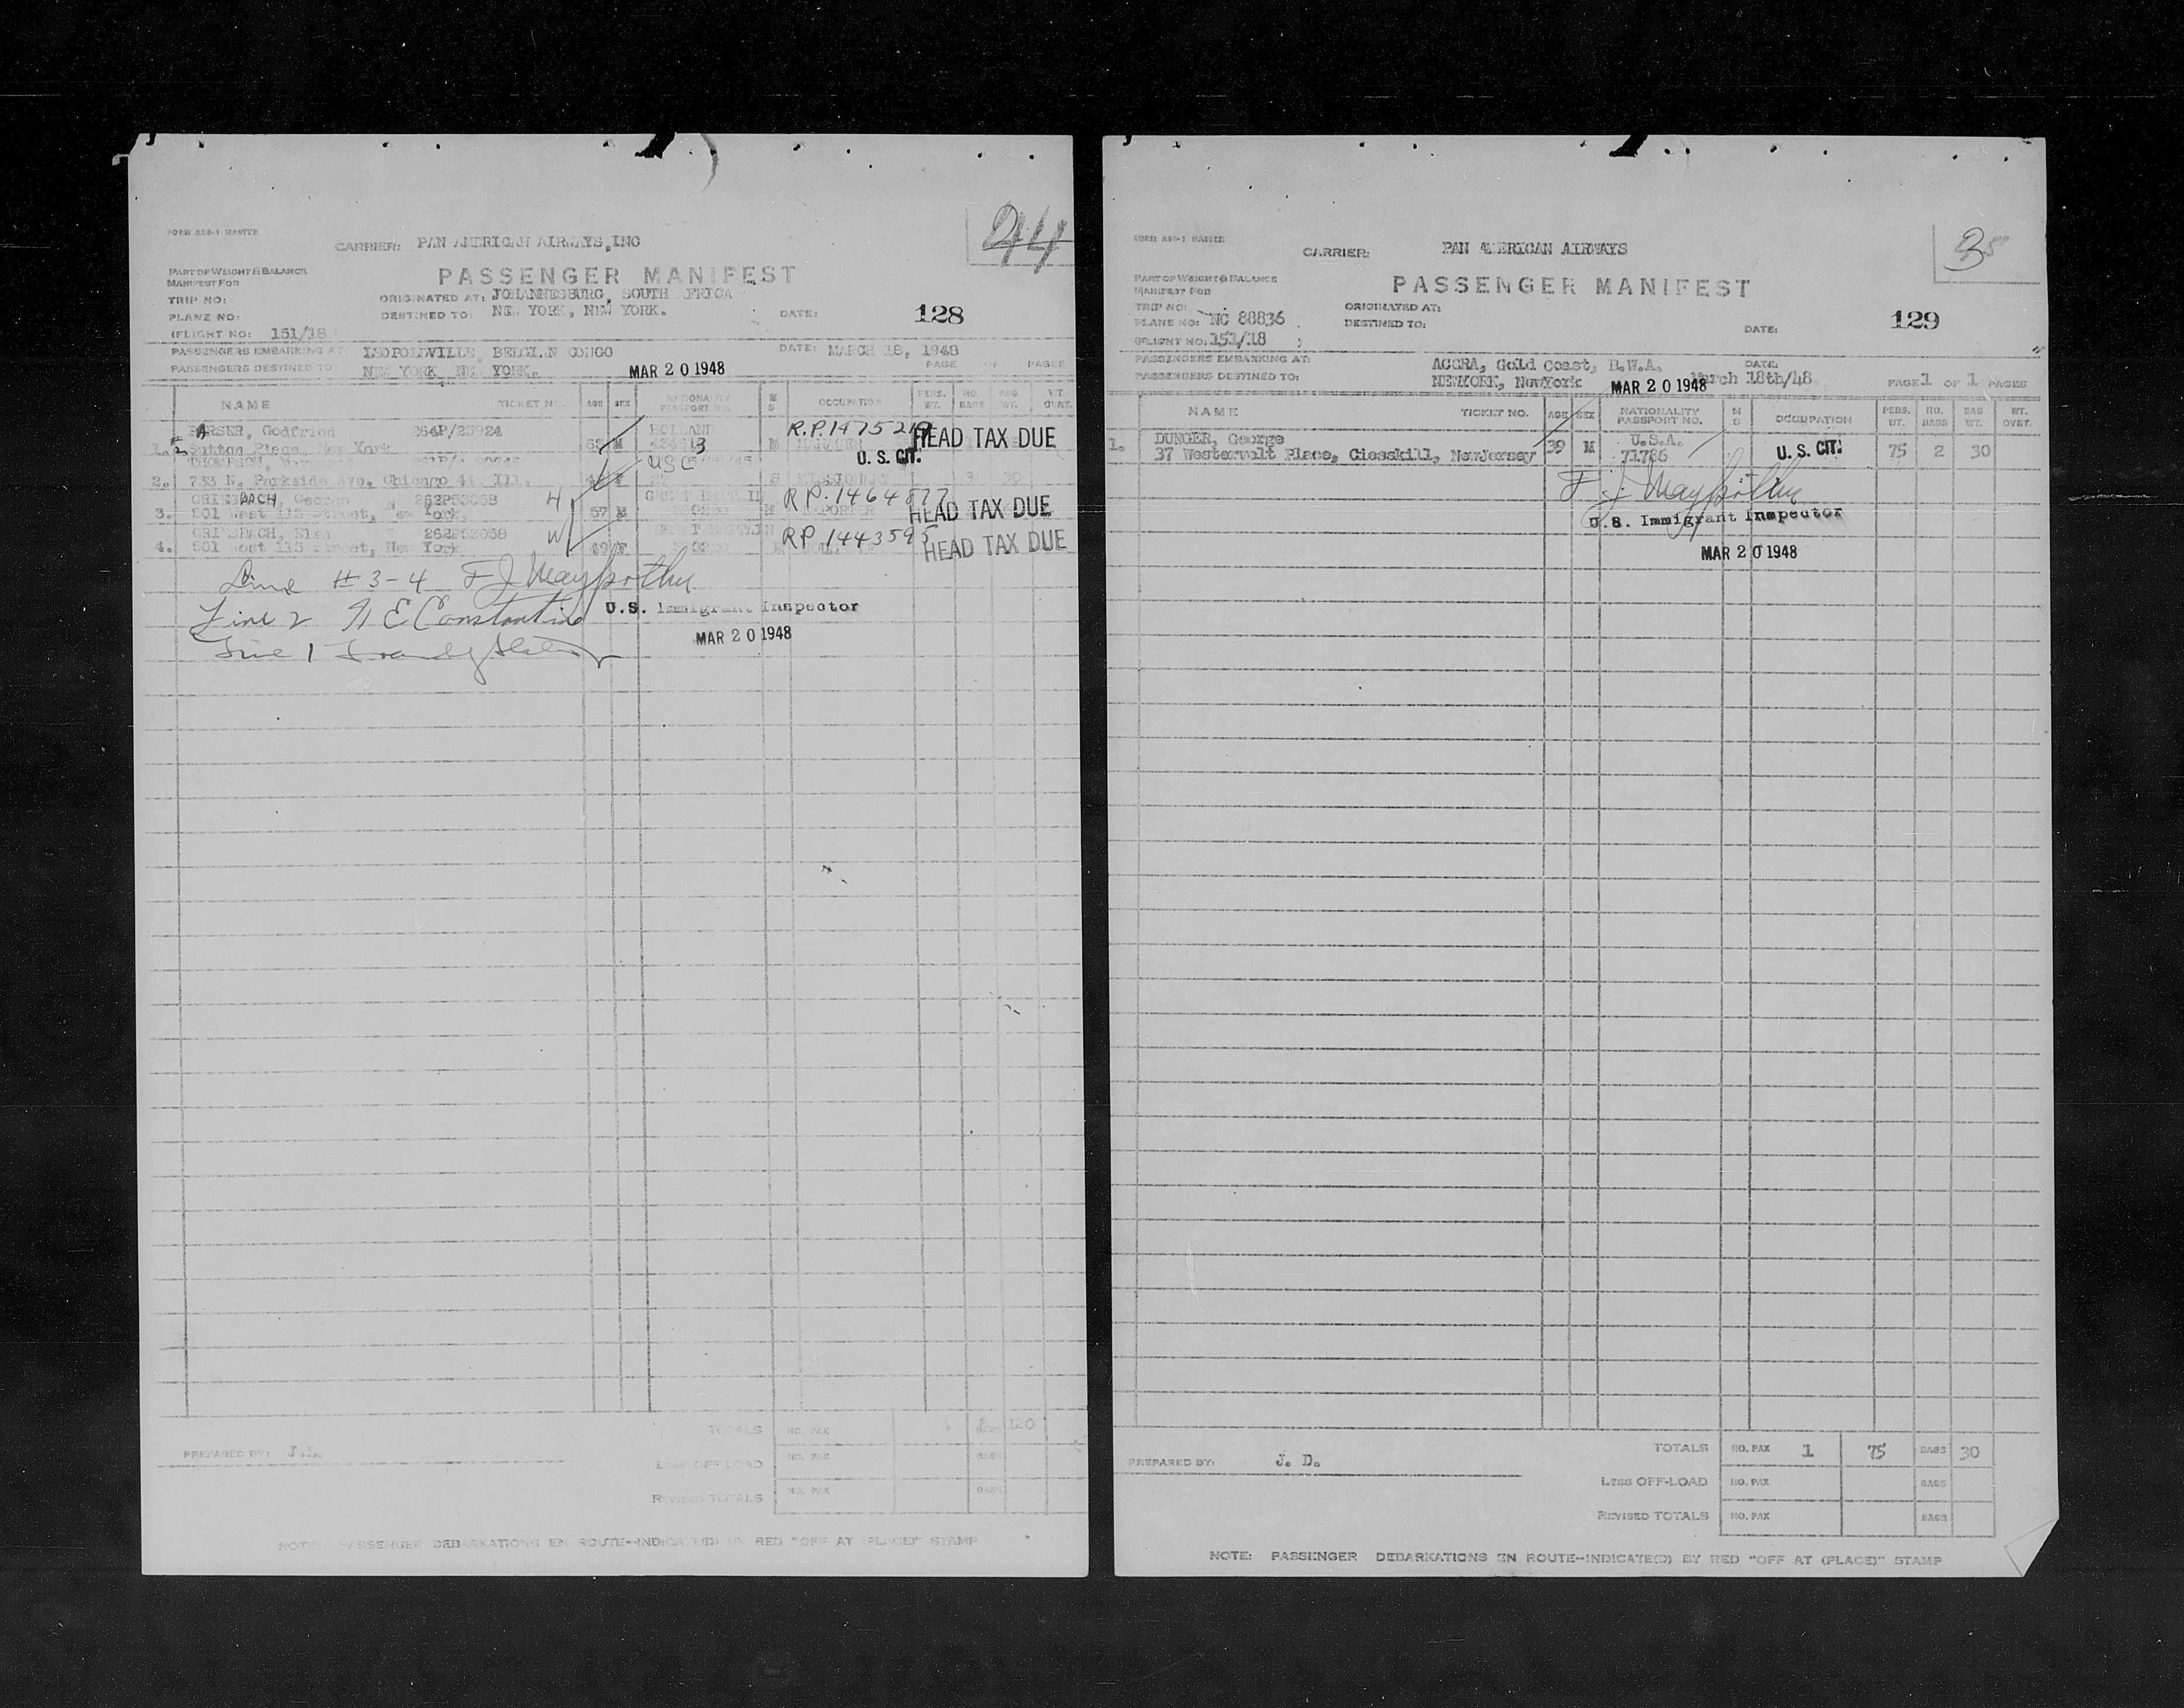 FORM
CARRIER: PAN AMERICAN AIRWAYS, INC
44
PART OF WEIGHT & BALANCE
MANIFEST FOR
PASSENGER MANIFEST
TRIP NO:
ORIGINATED AT: JOHANNESBURG, SOUTH AFRICA
PLANE NO:
DESTINED TO: NEW YORK, NEW YORK.
DATE:
128
(FLIGHT NO: 151/18
PASSENGERS EMBARKING AT: LEOPOLDVILLE, BELGIAN CONGO
DATE: MARCH 18, 1948
PASSENGERS DESTINED TO: NEW YORK NEW YORK.
MAR 20 1948
PAGE OF PAGES
NAME TICKET NO. AGE SEX NATIONALITY PASSPORT NO. M S OCCUPATION PERS. WT. NO. BAGS BAG WT. WT. OVRT.
Godfried 264P/25924 HOLLAND R.P. HEAD TAX DUE
1. Sutton Place, New York M M U. S. CIT.
THOMPSON, USC
2. 733 N. Parkside Ave. Chicago 44 Ill. S MISSIONARY 30
GRIESBACH, George 262P53058 H R.P. 1464877
3. 501 West 113 Street, New York. 57 M M HEAD TAX DUE
GRIESBACH, Elsa 262P53058 W R.P. 1443595
4. 501 West 113 Street, New York 49 F HEAD TAX DUE
Line #3-4 F J
Line 2 E Constantine U.S. Immigrant Inspector
MAR 20 1948
Line 1
TOTALS NO. PAX 4 8 BAGS 120
PREPARED BY:
LESS OFF-LOAD NO. PAX BAGS
REVISED TOTALS NO. PAX BAGS
NOTE: PASSENGER DEBARKATIONS EN ROUTE-INDICATE(D) BY RED "OFF AT (PLACE)" STAMP
FORM
CARRIER: PAN AMERICAN AIRWAYS
PART OF WEIGHT & BALANCE
MANIFEST FOR
PASSENGER MANIFEST
TRIP NO:
ORIGINATED AT:
PLANE NO: NC 88836
DESTINED TO:
DATE:
129
(FLIGHT NO: 151/18 )
PASSENGERS EMBARKING AT: ACCRA, Gold Coast, B.W.A. DATE:
PASSENGERS DESTINED TO: NEWYORK, NewYork MAR 20 1948 March 18th/48 PAGE 1 OF 1 PAGES
NAME TICKET NO. AGE SEX NATIONALITY PASSPORT NO. M S OCCUPATION PERS. WT. NO. BAGS BAG WT. WT. OVRT.
1. DUNGER, George 39 M U.S.A. U. S. CIT. 75 2 30
37 Westervelt Place, Ciesskill, NewJersey 71786
F J
U.S. Immigrant Inspector
MAR 20 1948
TOTALS NO. PAX 1 75 BAGS 30
PREPARED BY: J. D.
LESS OFF-LOAD NO. PAX BAGS
REVISED TOTALS NO. PAX BAGS
NOTE: PASSENGER DEBARKATIONS EN ROUTE-INDICATE(D) BY RED "OFF AT (PLACE)" STAMP